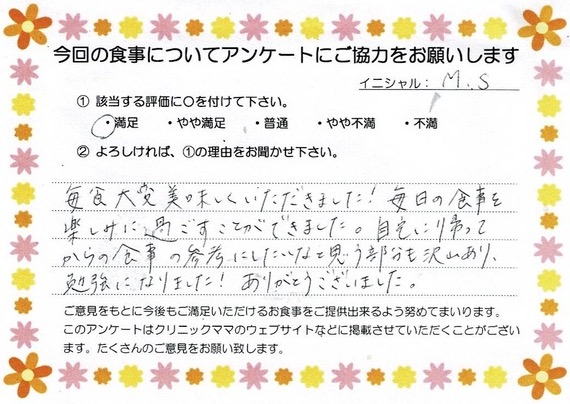 今回の食事についてアンケートにご協力をお願いします
イニシャル： M.S
① 該当する評価に○を付けて下さい。
・満足 ・やや満足 ・普通 ・やや不満 ・不満
② よろしければ、①の理由をお聞かせ下さい。
毎食大変美味しくいただきました！毎日の食事を
楽しみに過ごすことができました。自宅に帰って
からの食事の参考にしたいなと思う部分も沢山あり、
勉強になりました！ありがとうございました。
ご意見をもとに今後もご満足いただけるお食事をご提供出来るよう努めてまいります。
このアンケートはクリニックママのウェブサイトなどに掲載させていただくことがござい
ます。たくさんのご意見をお願い致します。